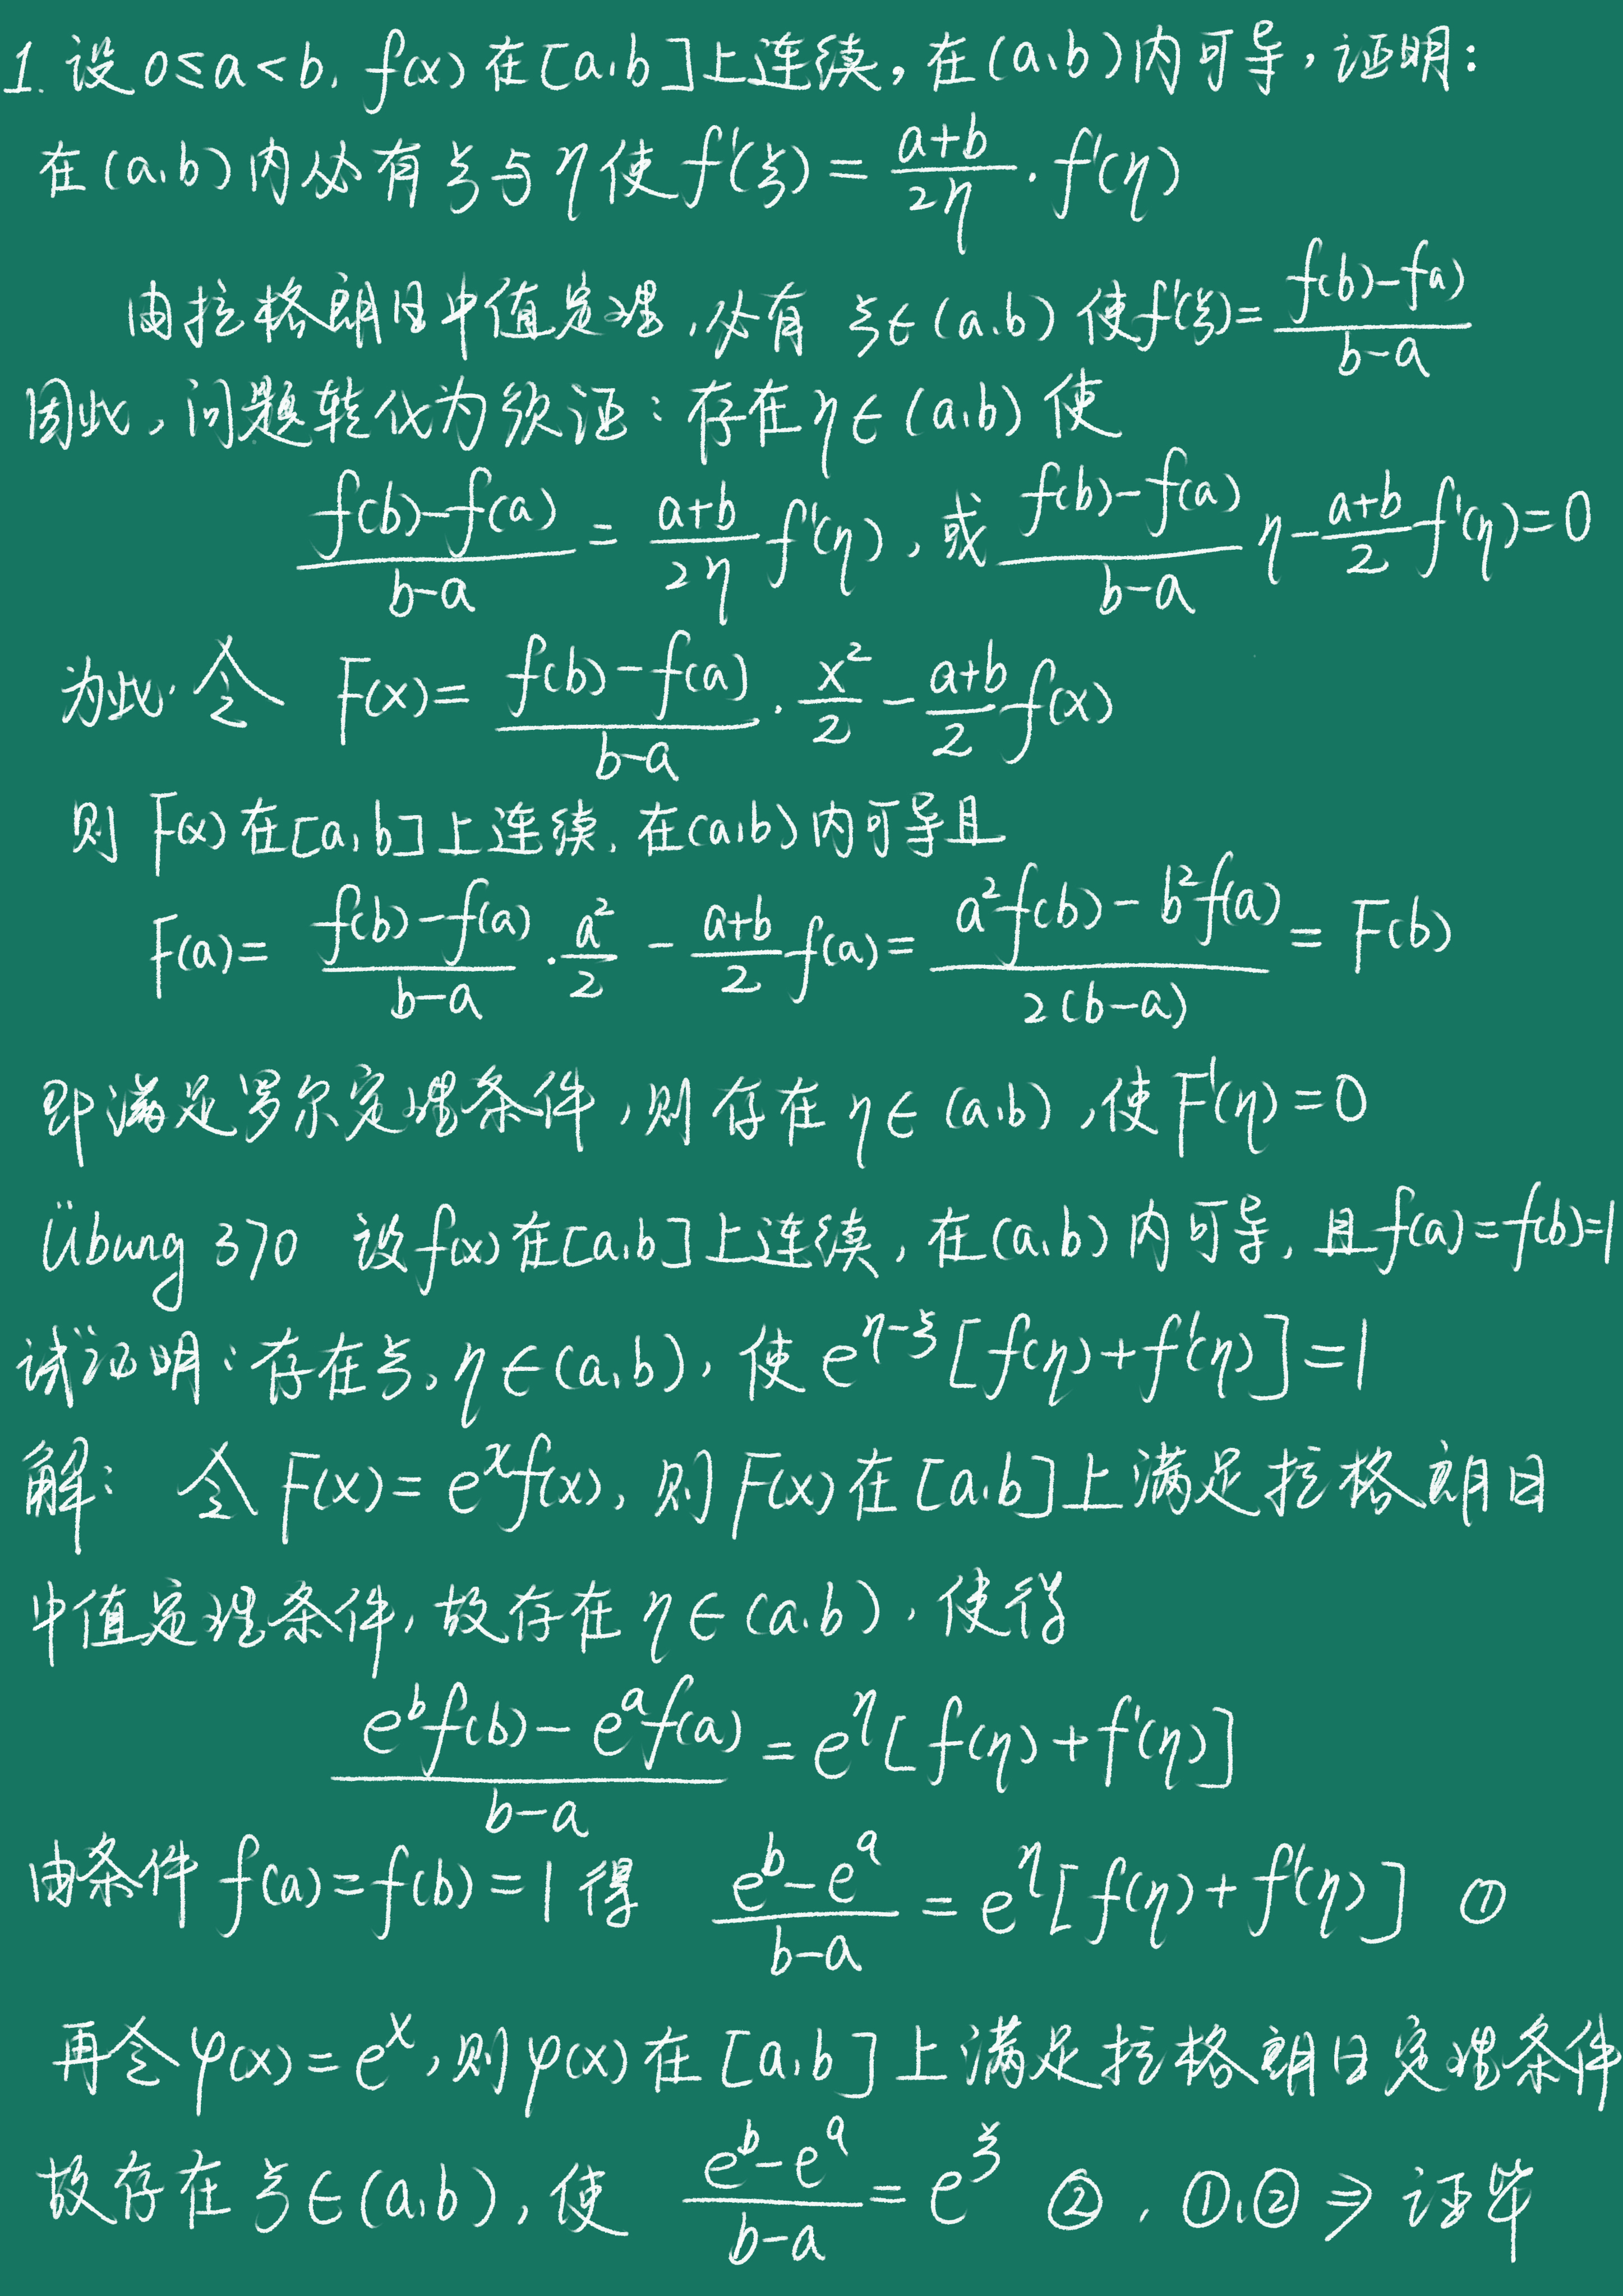 1. 设 0≤a<b, f(x) 在[a,b]上连续,在(a,b)内可导,证明:
在(a,b)内必有ξ与η使 f'(ξ) = \frac{a+b}{2η}·f'(η)
由拉格朗日中值定理,必有 ξ∈(a,b) 使f'(ξ)=\frac{f(b)-f(a)}{b-a}
因此,问题转化为须证:存在η∈(a,b)使
\frac{f(b)-f(a)}{b-a} = \frac{a+b}{2η}f'(η),或\frac{f(b)-f(a)}{b-a}η-\frac{a+b}{2}f'(η)=0
为此,令 F(x)=\frac{f(b)-f(a)}{b-a}·\frac{x^2}{2}-\frac{a+b}{2}f(x)
则 F(x)在[a,b]上连续,在(a,b)内可导且
F(a)=\frac{f(b)-f(a)}{b-a}·\frac{a^2}{2}-\frac{a+b}{2}f(a)=\frac{a^2f(b)-b^2f(a)}{2(b-a)}=F(b)
即满足罗尔定理条件,则存在η∈(a,b),使F'(η)=0
Übung 370 设f(x)在[a,b]上连续,在(a,b)内可导,且f(a)=f(b)=1
试证明:存在ξ,η∈(a,b),使 e^{η-ξ}[f(η)+f'(η)]=1
解: 令F(x)=e^xf(x),则F(x)在[a,b]上满足拉格朗日
中值定理条件,故存在η∈(a,b),使得
\frac{e^bf(b)-e^af(a)}{b-a}=e^η[f(η)+f'(η)]
由条件 f(a)=f(b)=1 得 \frac{e^b-e^a}{b-a}=e^η[f(η)+f'(η)] ①
再令φ(x)=e^x,则φ(x)在[a,b]上满足拉格朗日定理条件
故存在ξ∈(a,b),使 \frac{e^b-e^a}{b-a}=e^ξ ②,①,②⇒证毕